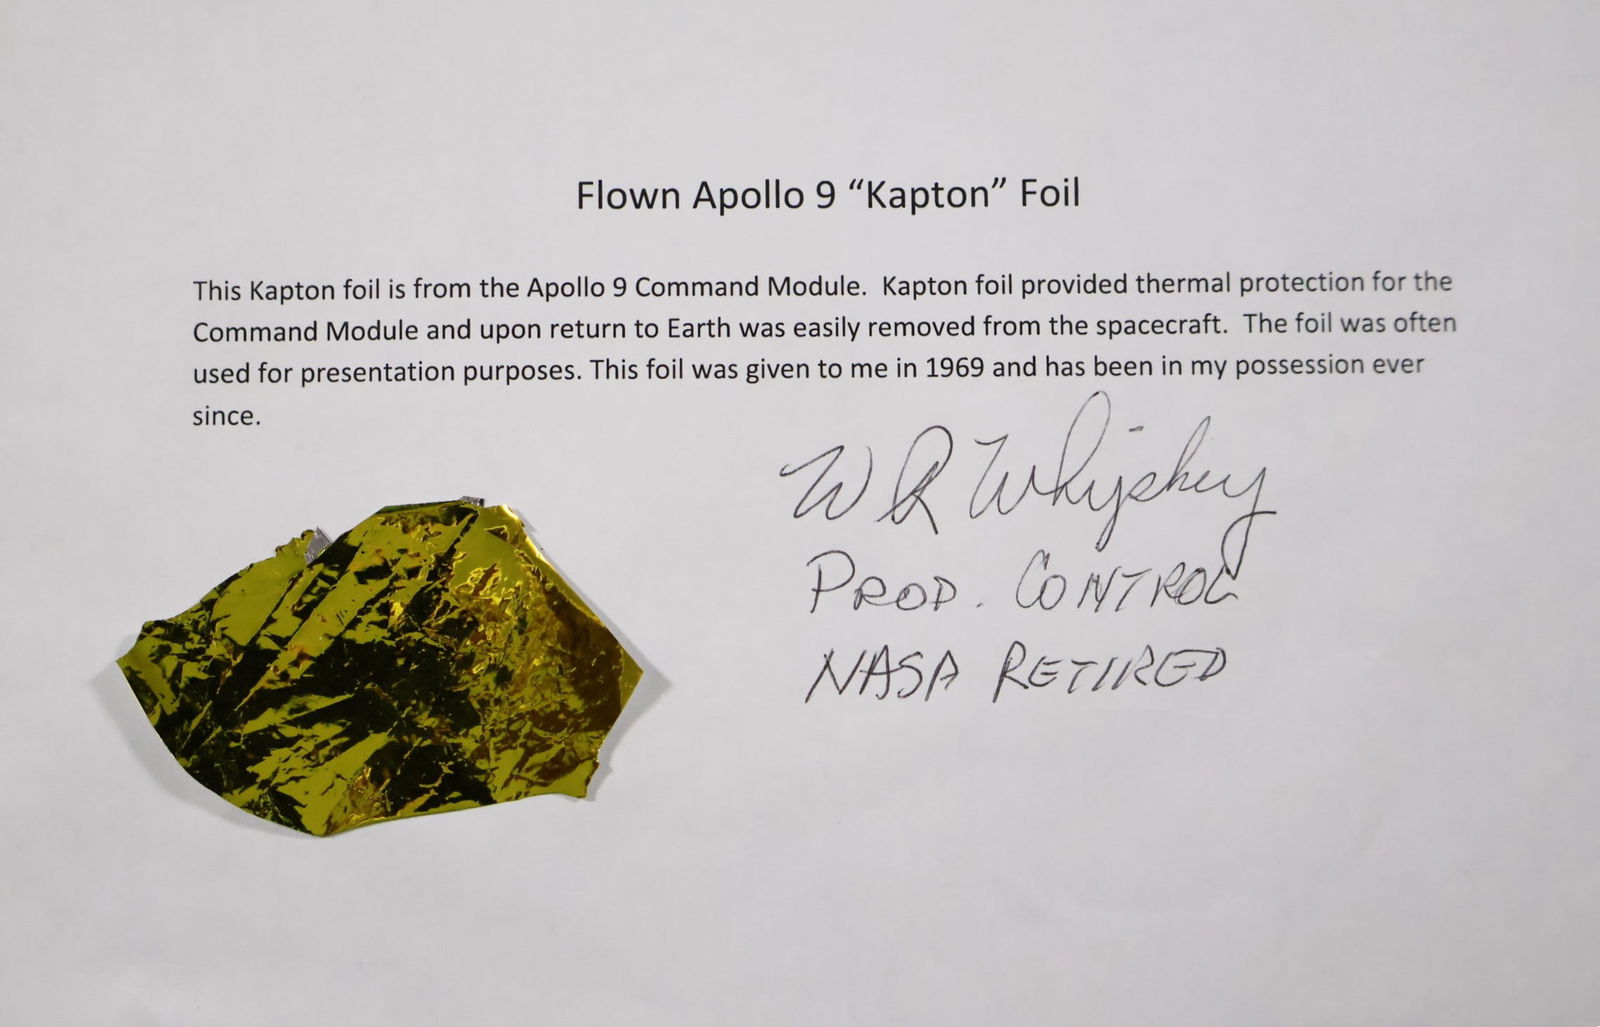 Flown Apollo 9 “Kapton” Foil
This Kapton foil is from the Apollo 9 Command Module.  Kapton foil provided thermal protection for the
Command Module and upon return to Earth was easily removed from the spacecraft.  The foil was often
used for presentation purposes. This foil was given to me in 1969 and has been in my possession ever
since.
W R Whipkey
PROD. CONTROL
NASA RETIRED